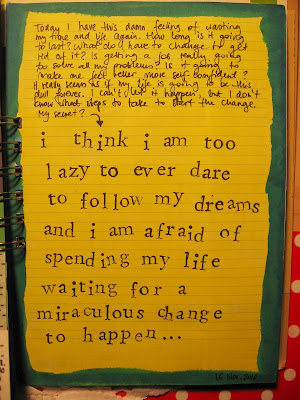 Today I have this damn feeling of wasting
my time and life again. How long is it going
to last? What do I have to change to get
rid of it? Is getting a job really going
to solve all my problems? Is it going to
make me feel better, more self confident?
It really seems as if my life is going to be this
dull forever. I can't let it happen, but I don't
know what steps to take to start the change.
My secret?
i think i am too
lazy to ever dare
to follow my dreams
and i am afraid of
spending my life
waiting for a
miraculous change
to happen...